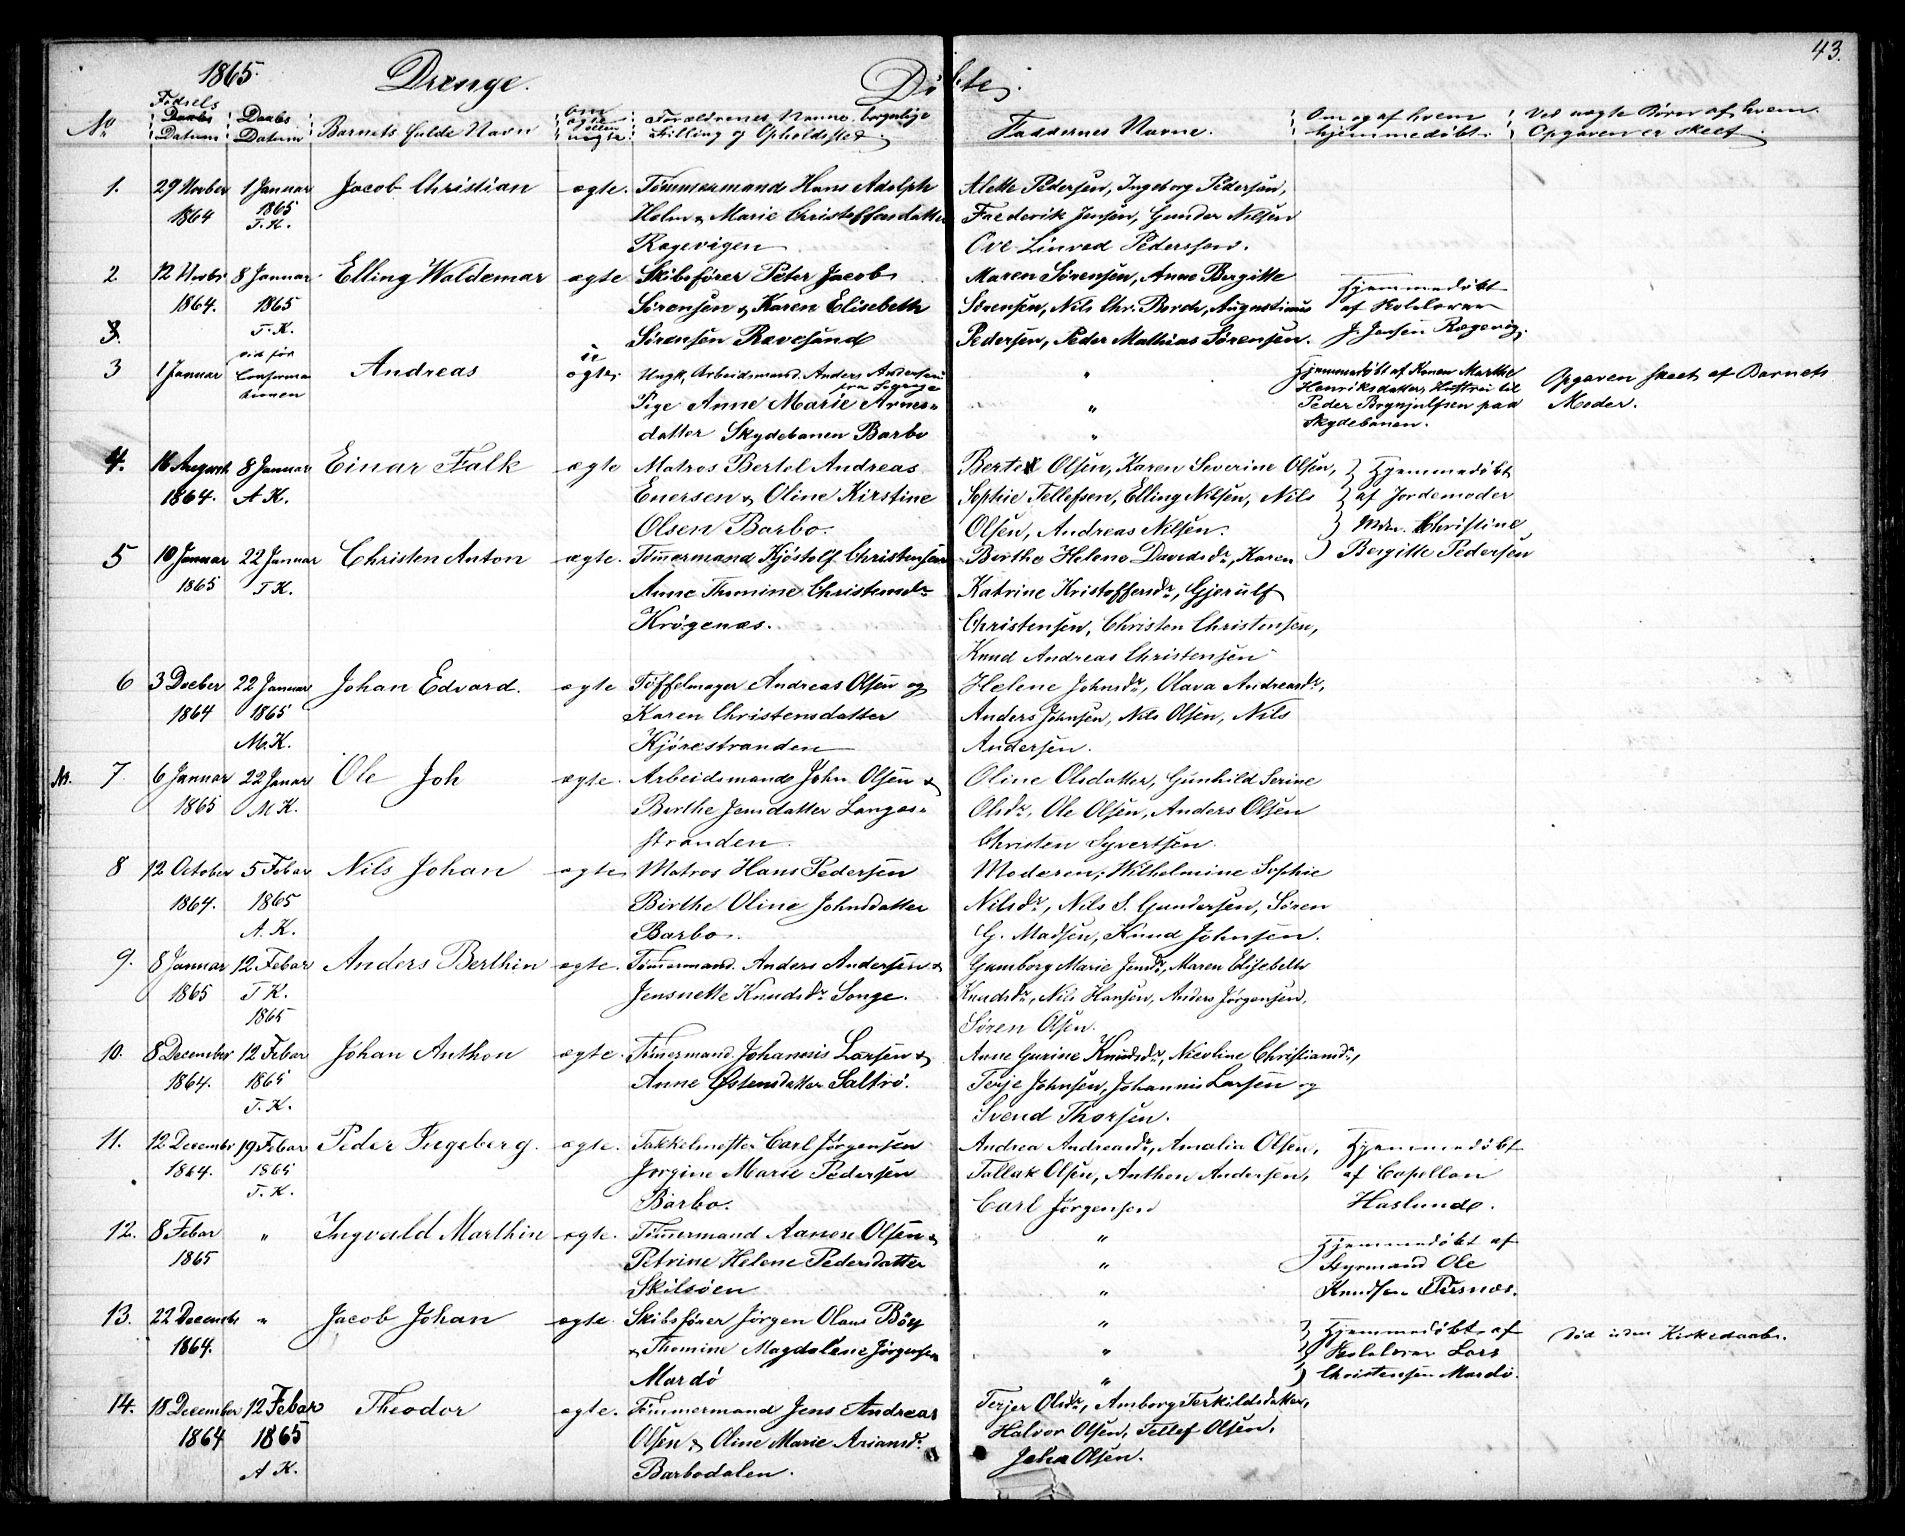 43.
1865. Drenge. Døbte.
No Fødsels Datum Daabs Datum Barnets fulde Navn Om ægte eller uægte Forældrenes Navne, borgerlige Stilling og Opholdssted. Faddernes Navne. Om og af hvem hjemmedøbt. Ved uægte Børn af hvem Opgaven er skeet.
1. 29 Novber 1 Januar Jacob Christian ægte. Tømmermand Hans Adolph Alette Pedersen, Ingeborg Pedersen,
1864 1865 Holm & Marie Christoffersdatter Frederik Jensen, Gunder Nilsen
T. K. Ragevigen Ove Pederssen.
2 12 Novbr 8 Januar Elling Waldemar ægte Skibsfører Peter Jacob Maren Sørensen, Anne Bergitte Hjemmedøbt
1864. 1865 Sørensen & Karen Elisebeth Sørensen, Nils Chr. Augustinus af Kolelærer
3. T. K. Sørensen Rævesand Pedersen, Peder Mathias Sørensen. J. Jensen Rægevig.
3 1 Januar ved før Confirmationen Andreas uægte Ungk. Arbeidsmand Anders Andersen fra " Hjemmedøbt af Konen Marthe Opgaven skeet af Barnets
Pige Anne Marie Arnes- " Henriksdatter, Hustru til Peder Brynjulfsen paa Moder.
datter Skydebanen Barbo " Skydebanen.
4. 16 August 8 Januar Einar Falk ægte Matros Bertel Andreas Bertel Olsen, Karen Severine Olsen, Hjemmedøbt
1864. A K. Enersen & Oline Kirstine Sophie Tellefsen, Elling Nilsen, Nils af Jordemoder
Olsen Barbo. Olsen, Andreas Nilsen. Mdm. Christine
5 10 Januar 22 Januar Christen Anton ægte. Tømmermand Kjöstolf Christensen Birthe Helene Davidsdr, Karen Bergitte Pedersen
1865 T K. Anne Thomine Christensdr Katrine Kristoffersdr, Gjerulf
Krögenæs. Christensen, Christen Christensen,
Knud Andreas Christensen
6 3 Decber 22 Januar Johan Edvard. ægte Töffelmager Andreas Olsen og Helene Johnsdr, Olava Andreasdr,
1864 1865 Karen Christensdatter Anders Johnsen, Nils Olsen, Nils
M. K. Kjörestranden Andersen.
No. 7. 6 Januar 22 Janar Ole Joh ægte. Arbeidsmand John Olsen & Oline Olsdatter, Gunhild Serine
1865 M K. Berthe Jensdatter Langes- Olsdr, Ole Olsen, Anders Olsen
stranden. Christen Syvertsen.
8 12 October 5 Febar Nils Johan ægte Matros Hans Pedersen Moderen, Wilhelmine Sophie
1864. 1865 Birthe Oline Johnsdatter Nilsdr, Nils S. Gundersen, Søren
A. K. Barbo. G. Madsen, Knud Johnsen.
9. 8 Januar 12 Febar Anders Berthin ægte. Tømmermand Anders Andersen & Gumborg Marie Jensdr, Maren Elisebeth
1865 T K. Jensnette Knudsdr Songe. Knudsdr, Nils Hansen, Anders Jørgensen,
1865 Søren Olsen.
10. 8 December 12 Febar Johan Anthon ægte. Tømmermand Johannis Larsen & Anne Gurine Knudsdr, Nicoline Christiansdr,
1864. 1865 Anne Østensdatter Saltrö. Terje Johnsen, Johannis Larsen og
T. K. Svend Thorsen.
11. 12 Decembr 19 Febar Peder Ingeberg. ægte. Takkelmester Carl Jørgensen Andrea Andreasdr, Amalia Olsen, Hjemmedöbt
1864. 1865 Jørgine Marie Pedersen Tallak Olsen, Anthon Andersen, af Capellan
T. K. Barbo. Carl Jørgensen Haslund.
12. 8 Febar " Ingvald Marthin ægte. Tømmermand Aanon Olsen & " Hjemmedøbt af
1865 Petrine Helene Pedersdatter " Styrmand Ole
Skilsöen " Knudsen
13. 22 Decembr " Jacob Johan ægte. Skibsfører Jørgen Olaus Böy " Hjemmedøbt af Död uden Kirkedaab.
1864. & Thomine Magdalene Jørgensen " Skolelærer Lars
Mardö " Christensen Mardö.
14. 18 December 12 Febar Theodor ægte. Tømmermand Jens Andreas Terjer Olsdr, Amborg Terkildsdatter,
1864 1865 Olsen & Oline Marie Ariansdr. Halvor Olsen, Tellef Olsen,
A K. Barbodalen. John Olsen.